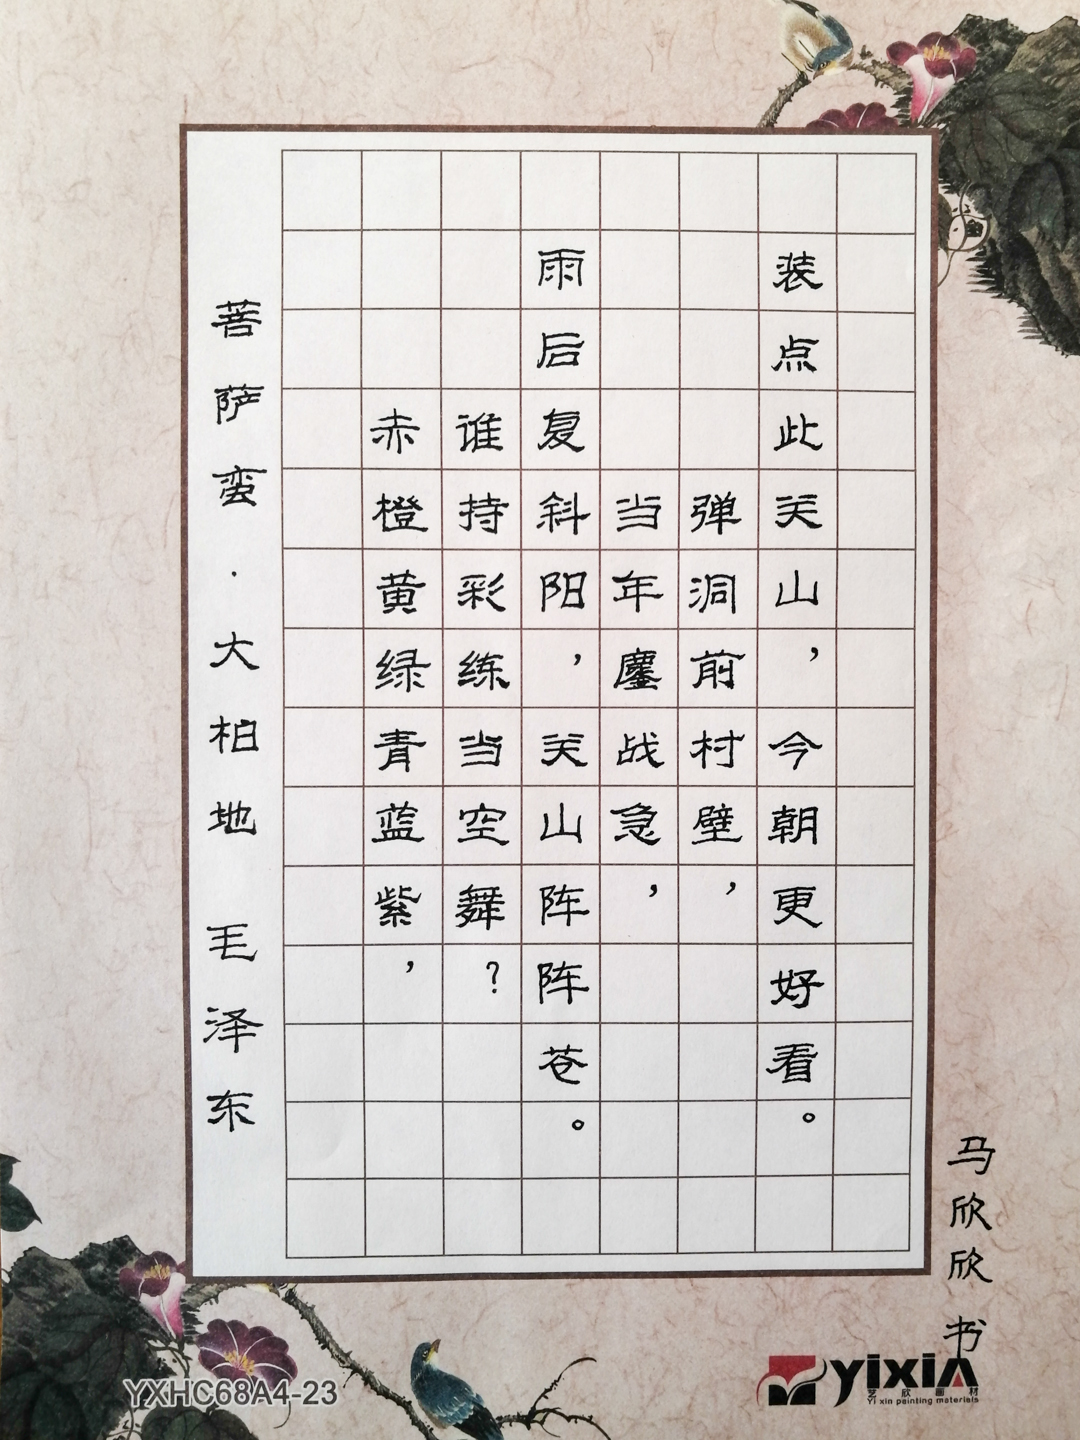 菩萨蛮·大柏地 毛泽东
赤橙黄绿青蓝紫，
谁持彩练当空舞？
雨后复斜阳，关山阵阵苍。
当年鏖战急，
弹洞前村壁，
装点此关山，今朝更好看。
马欣欣 书
YXHC68A4-23
yixin
艺欣画材
Yi xin painting materials